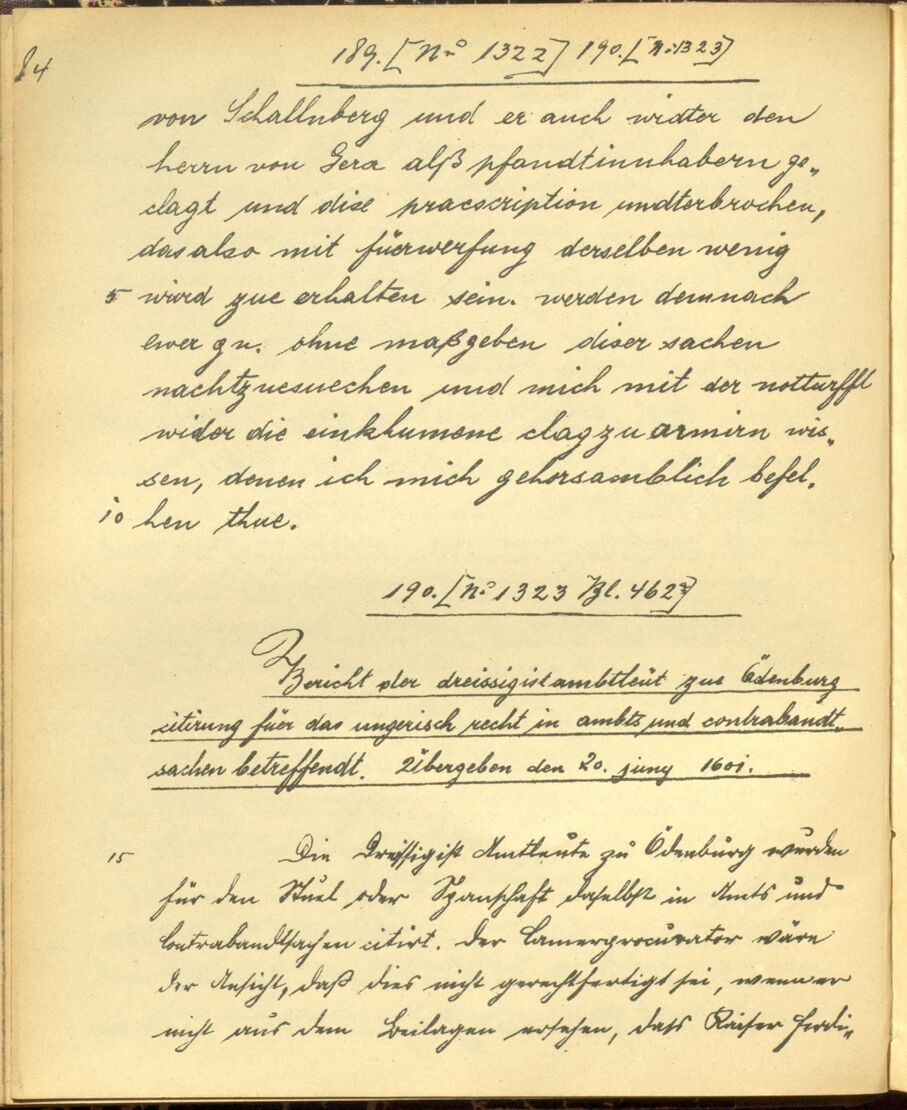 84
189. [No 1322] 190. [No 1323]
von Schallnberg und er auch widter den
herrn von Gera alß pfandtinnhabern ge„
clagt und dise praescription undterbrochen,
das also mit füerwerfung derselben wenig
5 wird zue erhalten sein. werden demnach
ewer gn. ohne maßgeben diser sachen
nachtzuesuechen und mich mit der notturfft
wider die einkhumene clag zu armirn wis„
sen, denen ich mich gehorsamblich befel„
10 hen thue.
190. [No 1323 Bl. 462]
Bericht der dreissigistambtleüt zue Ödenburg
citirung für das ungerisch recht in ambts und contrabandt„
sachen betreffendt. Übergeben den 20. juny 1601.
15 Die Dreissigist Amtleute zu Ödenburg wurden
für den Stuel oder Spanschaft daselbst in Amts und
Contrabandtsachen citirt. Der Camerprocurator wäre
der Ansicht, daß dies nicht gerechtfertigt sei, wenn er
nicht aus dem Beilagen ersehen, dass Kaiser Ferdi„